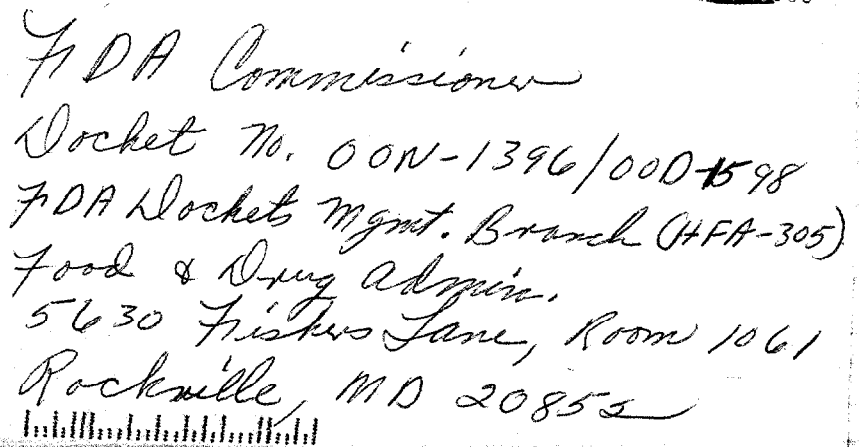 FDA Commissioner
Docket No. 00N-1396/00D-1598
FDA Dockets Mgmt. Branch (HFA-305)
Food & Drug Admin.
5630 Fishers Lane, Room 1061
Rockville, MD 20852